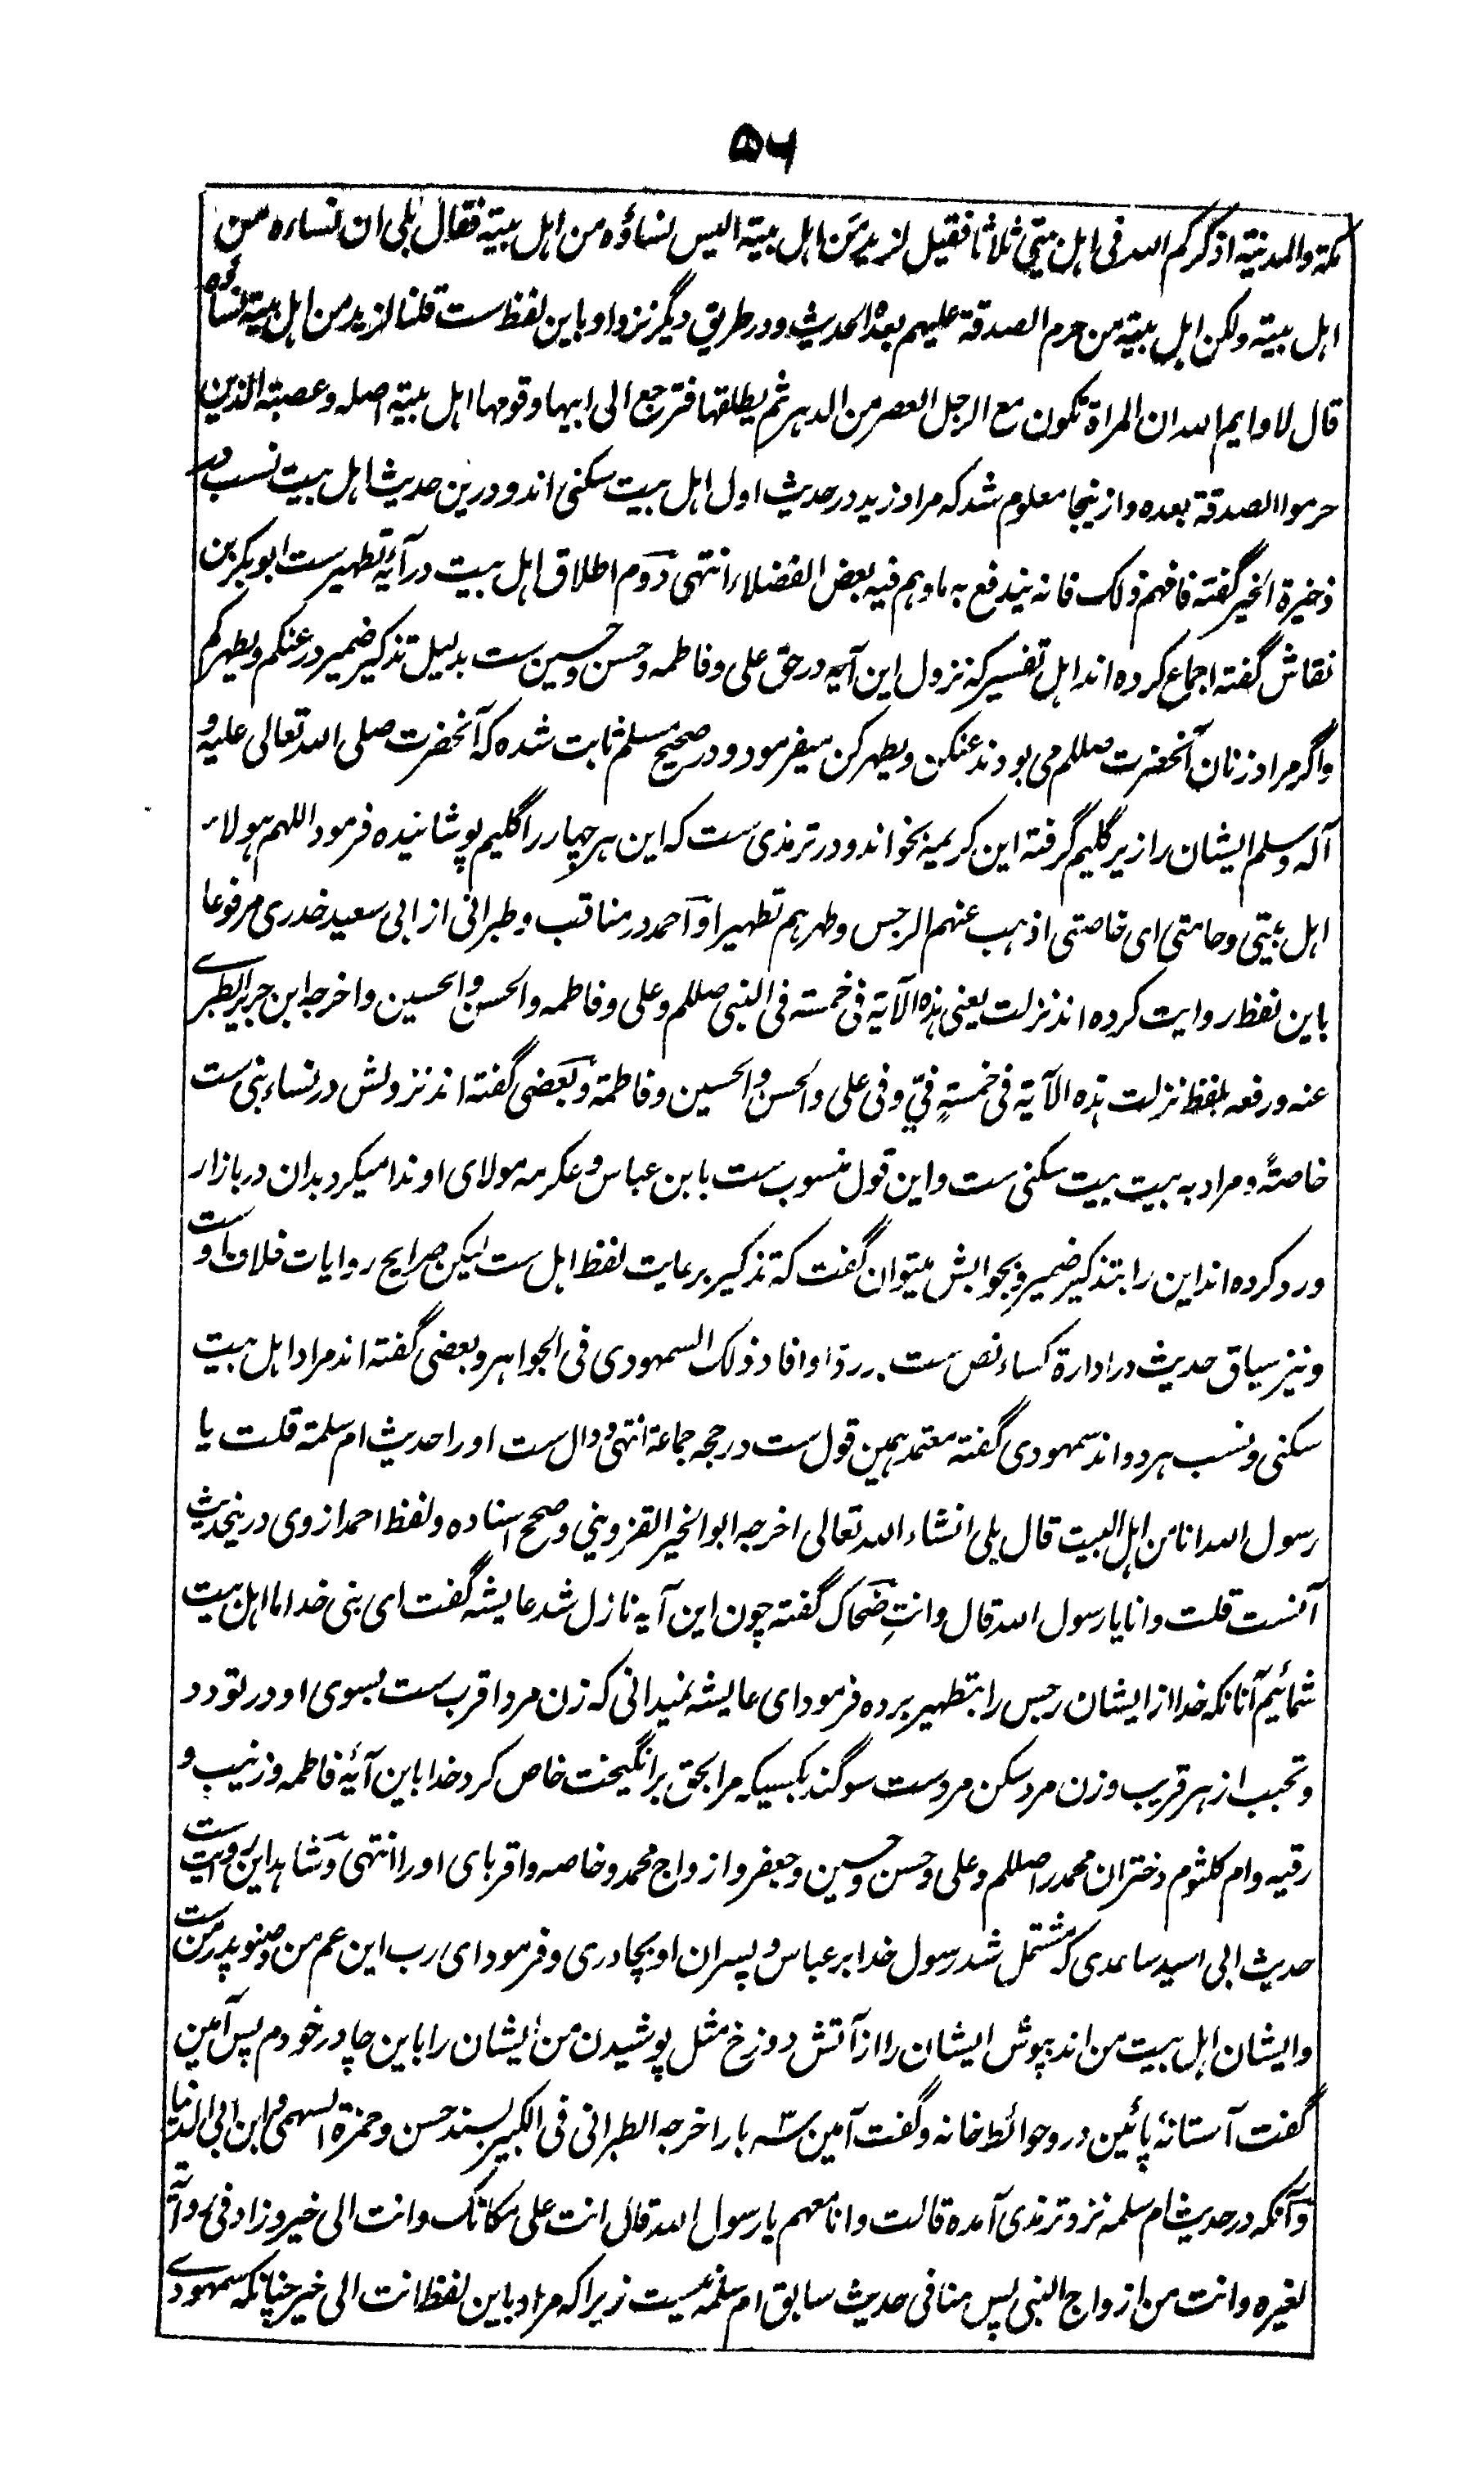 ۵۶
مکة والمدینة اذکرکم الله فی اهل بیتی ثلاثا فقیل لزید من اهل بیته الیس نساؤه من اهل بیته فقال بلی ان نساءه من
اهل بیته ولکن اهل بیته من حرم الصدقة علیهم بعده الحدیث و در طریق دیگر نزد او باین لفظ ست قلنا لزید من اهل بیته نساؤه
قال لا وایم الله ان المراة تکون مع الرجل العصر من الدهر ثم یطلقها فترجع الی ابیها وقومها اهل بیته اصله وعصبته الذین
حرموا الصدقة بعده و ازینجا معلوم شد که مراد زید در حدیث اول اهل بیت سکنی اند و درین حدیث اهل بیت نسب در
ذخیرة الخیر گفته فافهم ذلک فانه یندفع به ما وهم فیه بعض الفضلاء انتهی دوم اطلاق اهل بیت در آیۀ تطهیر ست ابوبکر بن
نقاش گفته اجماع کرده اند اهل تفسیر که نزول این آیه در حق علی و فاطمه و حسن و حسین ست بدلیل تذکیر ضمیر در عنکم و یطهرکم
و اگر مراد زنان آنحضرت صللم می بودند عنکن و یطهرکن میفرمود و در صحیح مسلم ثابت شده که آنحضرت صلی الله تعالی علیه و
آله وسلم ایشان را زیر گلیم گرفته این کریمه بخواند و در ترمذی ست که این هر چهار را گلیم پوشانیده فرمود اللهم هولاء
اهل بیتی وحامتی ای خاصتی اذهب عنهم الرجس وطهرهم تطهیرا و احمد در مناقب و طبرانی از ابی سعید خدری مرفوعا
باین لفظ روایت کرده اند نزلت یعنی هذه الآیة فی خمسة فی النبی صللم وعلی وفاطمه والحسن والحسین واخرجه ابن جریر الطبری
عنه ورفعه بلفظ نزلت هذه الآیة فی خمسةٍ فیّ وفی علی والحسن والحسین وفاطمة و بعضی گفته اند نزولش در نساء نبی ست
خاصةً و مراد به بیت بیت سکنی ست و این قول منسوب ست بابن عباس و عکرمه مولای او ندا میکرد بدان در بازار
ورد کرده اند این را بتذکیر ضمیر و بجوابش میتوان گفت که تذکیر برعایت لفظ اهل ست لیکن صرایح روایات خلاف اوست
و نیز سیاق حدیث در ادارة کساء نص ست بر رد او افاد ذلک السمهودی فی الجواهر و بعضی گفته اند مراد اهل بیت
سکنی و نسب هر دو اند سمهودی گفته معتمد همین قول ست درجحه جماعة انتهی و دال ست او را حدیث ام سلمة قلت یا
رسول الله انا من اهل البیت قال بلی انشاء الله تعالی اخرجه ابو الخیر القزوینی وصحح اسناده و لفظ احمد از وی درینحدیث
آنست قلت وانا یا رسول الله قال وانتِ ضحاک گفته چون این آیه نازل شد عایشه گفت ای نبی خدا ما اهل بیت
شمائیم آنانکه خدا از ایشان رجس را بتطهیر برده فرمود ای عایشه نمیدانی که زن مرد اقرب ست بسوی او در تودد
و تحبب از هر قریب و زن مرد سکن مردست سوگند بکسیکه مرا بحق برانگیخت خاص کرد خدا باین آیۀ فاطمه و زینب و
رقیه و ام کلثوم دختران محمد را صللم و علی و حسن و حسین و جعفر و ازواج محمد و خاصه و اقربای او را انتهی و شاهد این روایت ست
حدیث ابی اسید ساعدی که مشتمل شد رسول خدا بر عباس و پسران او بچادری و فرمود ای رب این عم من و صنو پدر من ست
و ایشان اهل بیت من اند بپوش ایشان را از آتش دوزخ مثل پوشیدن من ایشان را باین چادر خودم پس آمین
گفت آستانۀ پائین در و حوائط خانه و گفت آمین سه بار اخرجه الطبرانی فی الکبیر بسند حسن وحمزة السهمی وابن ابی الدنیا
و آنکه در حدیث ام سلمه نزد ترمذی آمده قالت وانا معهم یا رسول الله قال انت علی مکانک وانت الی خیر وزاد فی روایة
لغیره وانت من ازواج النبی پس منافی حدیث سابق ام سلمه نیست زیرا که مراد باین لفظ انت الی خیر چنانکه سمهودی